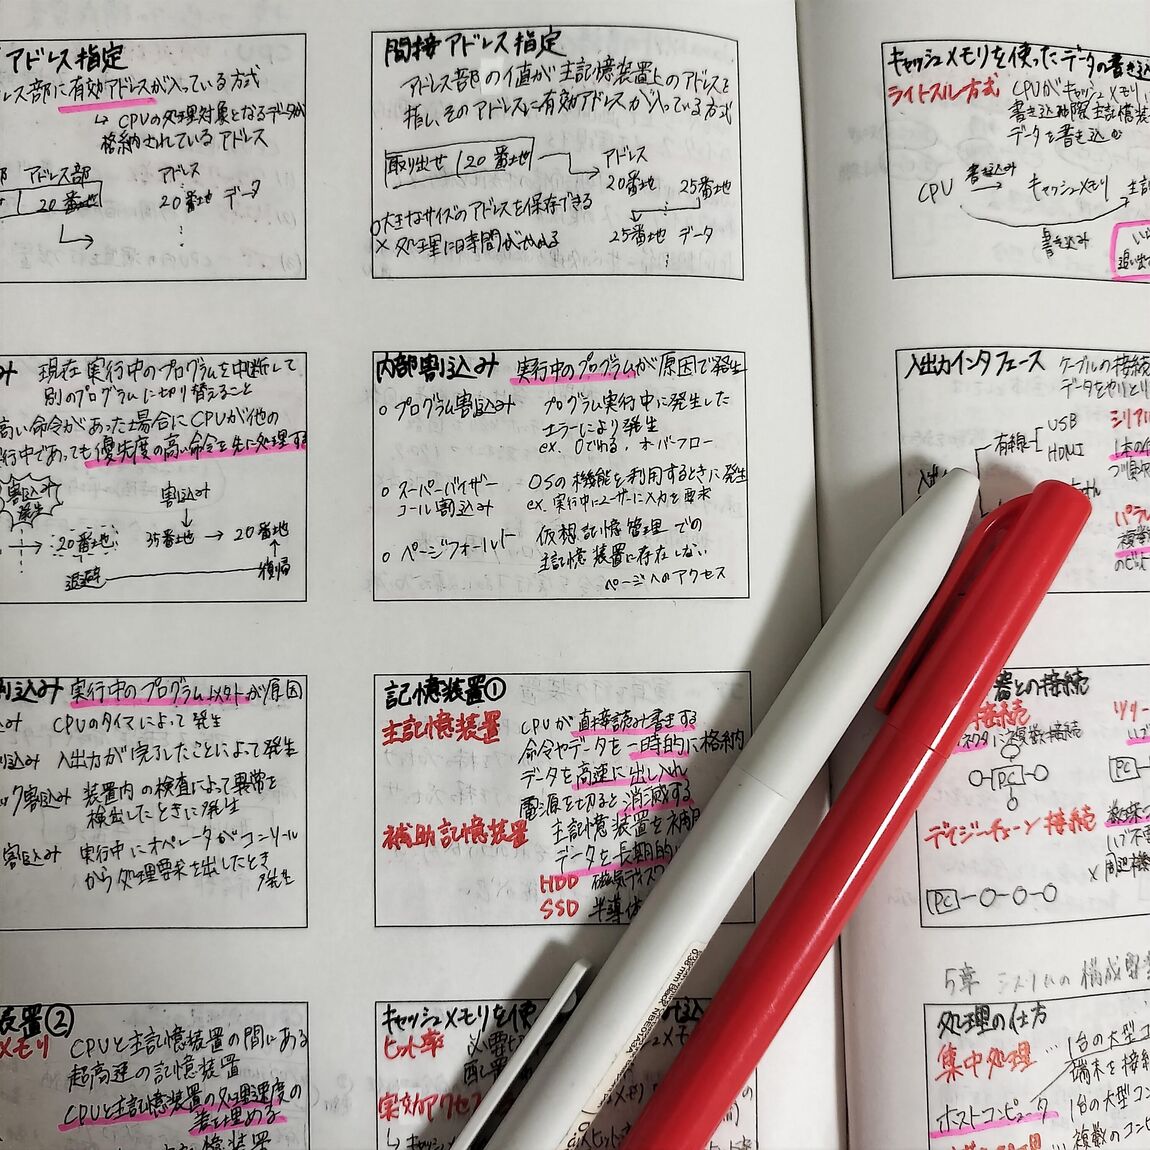 アドレス指定
レス部に有効アドレスが入っている方式
↳ CPUの処理対象となるデータが
格納されているアドレス
部 アドレス部 アドレス
20番地 20番地 データ
間接アドレス指定
アドレス部の値が主記憶装置上のアドレスを
指し、そのアドレスに有効アドレスが入っている方式
取り出せ 20番地 アドレス
20番地 25番地
○大きなサイズのアドレスを保存できる
× 処理に時間がかかる 25番地 データ
キャッシュメモリを使ったデータの書き込
ライトスルー方式 CPUがキャッシュメモリ
書き込む際、主記憶装
データを書き込む
書き込み
CPU → キャッシュメモリ 主記
書き込み
追い出
み 現在実行中のプログラムを中断して
別のプログラムに切り替えること
高い命令があった場合にCPUが他の
行中であっても優先度の高い命令を先に処理する
割込み
発生
割込み
→ 20番地 35番地 → 20番地
退避 復帰
内部割込み 実行中のプログラムが原因で発生
○ プログラム割込み プログラム実行中に発生した
エラーにより発生
ex. 0でわる, オーバーフロー
○ スーパーバイザー
コール割込み
OSの機能を利用するときに発生
ex. 実行中にユーザに入力を要求
○ ページフォールト 仮想記憶管理での
主記憶装置に存在しない
ページへのアクセス
入出力インタフェース ケーブルの接続
データをやりとり
有線 USB
HDMI
シリアル
1本の
つ順
パラレ
複数
のビット
割込み 実行中のプログラム以外が原因
込み CPUのタイマによって発生
割込み 入出力が完了したことによって発生
ック割込み 装置内の検査によって異常を
検出したときに発生
割込み 実行中にオペレータがコンソール
から処理要求を出したとき
発生
記憶装置①
主記憶装置 CPUが直接読み書きする
命令やデータを一時的に格納
データを高速に出し入れ
電源を切ると消滅する
補助記憶装置 主記憶装置を補
データを長期的
HDD 磁気ディスク
SSD 半導体
器との接続
接続 ツリー
ネクタに複数接続 ハブ
PC
PC
デイジーチェーン接続 数珠
ハブ不
× 周辺機
PC
装置②
メモリ CPUと主記憶装置の間にある
超高速の記憶装置
CPUと主記憶装置の処理速度の
差を埋める
憶装置
キャッシュメモリを使
ヒット率 必要
配置
実効アクセス
↳ キャッシュ
0.38 mm
5章 システムの構成要
処理の仕方
集中処理 … 1台の大型コ
端末を接続
ホストコンピュータ 1台の大型コン
複数のコンピ